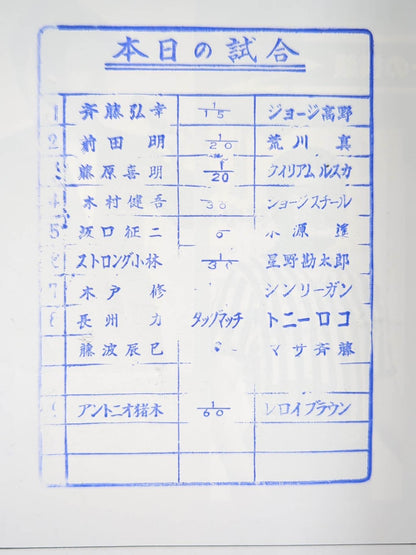 本日の試合
1 斉藤弘幸 1/15 ジョージ高野
2 前田明 1/20 荒川真
3 藤原喜明 1/20 ウイリアムルスカ
4 木村健吾 30 ショーンスチール
5 坂口征二 小源
6 ストロング小林 1/30 星野勘太郎
7 木戸修 シンリーガン
8 長州力 タッグマッチ トニーロコ
藤波辰巳 マサ斉藤
アントニオ猪木 1/60 レロイブラウン